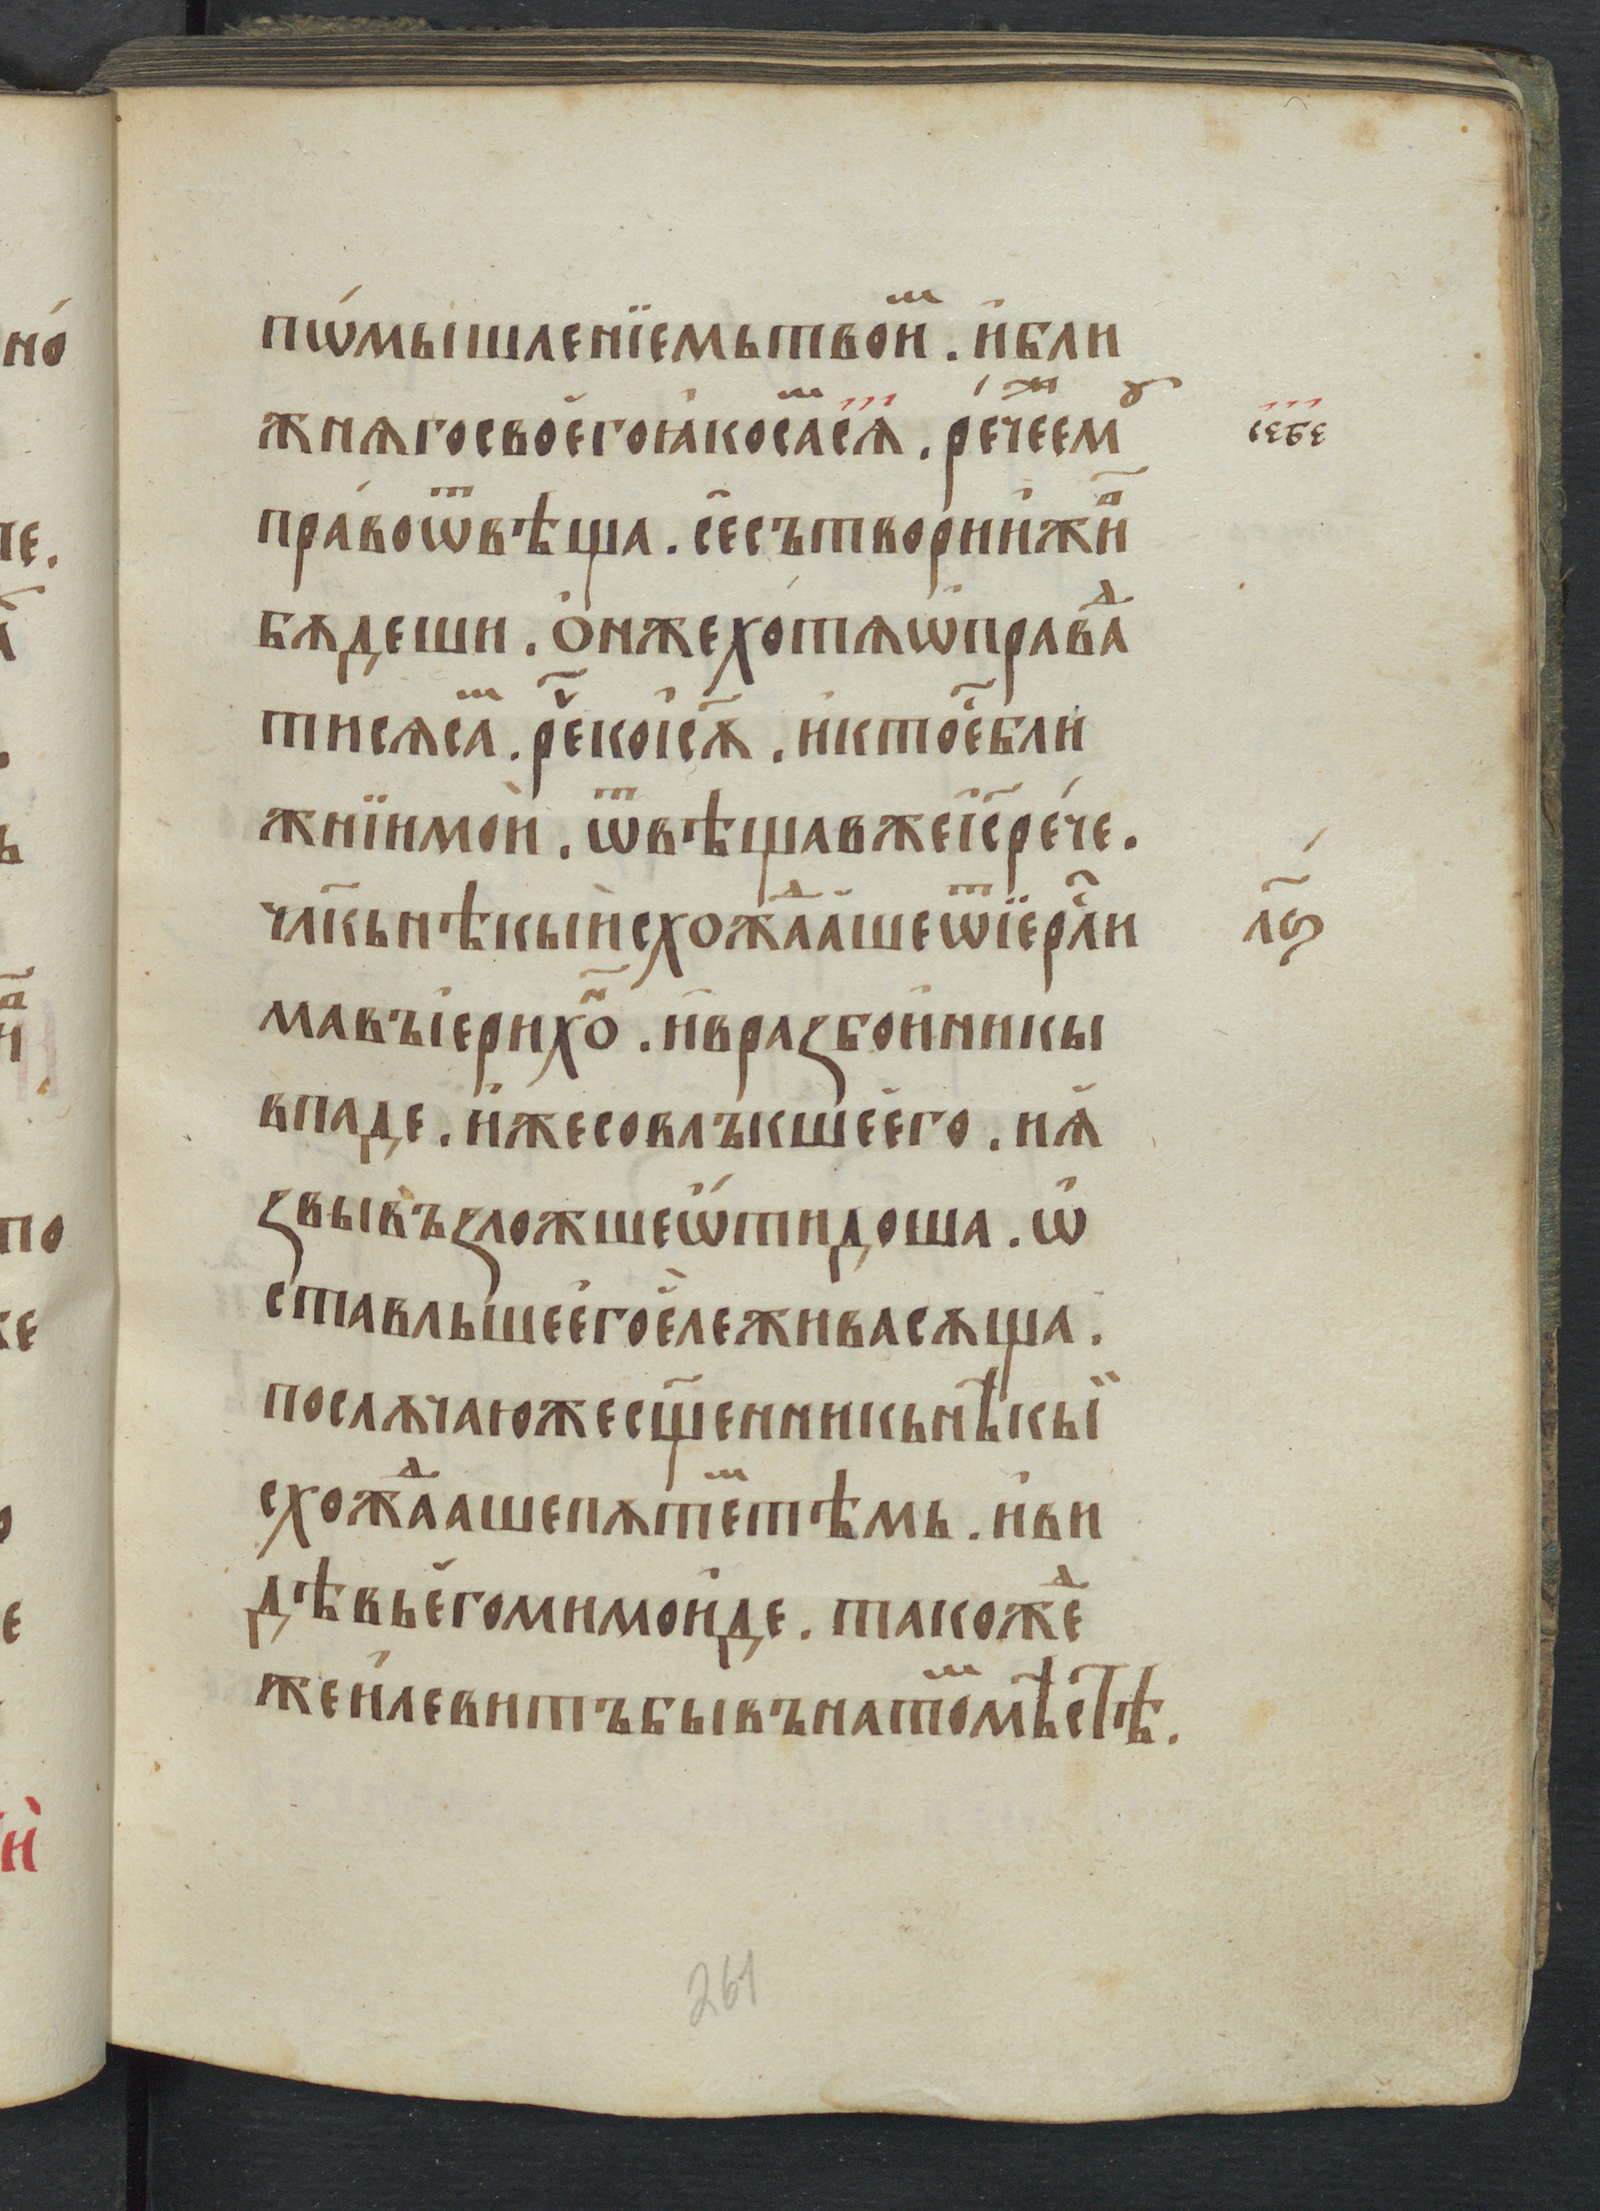 пѡ́мышленїемьтвоиⷨ҇ . и҆бли
жнѧгосвоегоꙗкосаⷨсѧ . речеⷤемꙋ
правоѿвѣща . с҃есътвориижи҃ⷡ
бѫдеши . онжехотѧѡправаⷣ
тисѧсаⷨ . реⷱкоі҃сѫ . иктоебли
жнїимои . ѿвѣщавжеі҃срече .
чл҃кьнѣкыисхожаⷣашеѿїерл҃и
мавъіерихоⷩ . ивраꙁбоиникы
впаде . ижесовлъкшеего . иꙗ
ꙁвывъꙁложшеѡтидоша . ѡ
ставльшеегоележивасѫща .
послѫчаюжесщ҃енникьнѣкыї
схожаⷣашепѫтеⷨтѣмь . иви
дѣвьегомимоиде . такожеⷣ
жеилевитъбывънатоⷨмѣсⷮѣ .
л҃ѕ
261